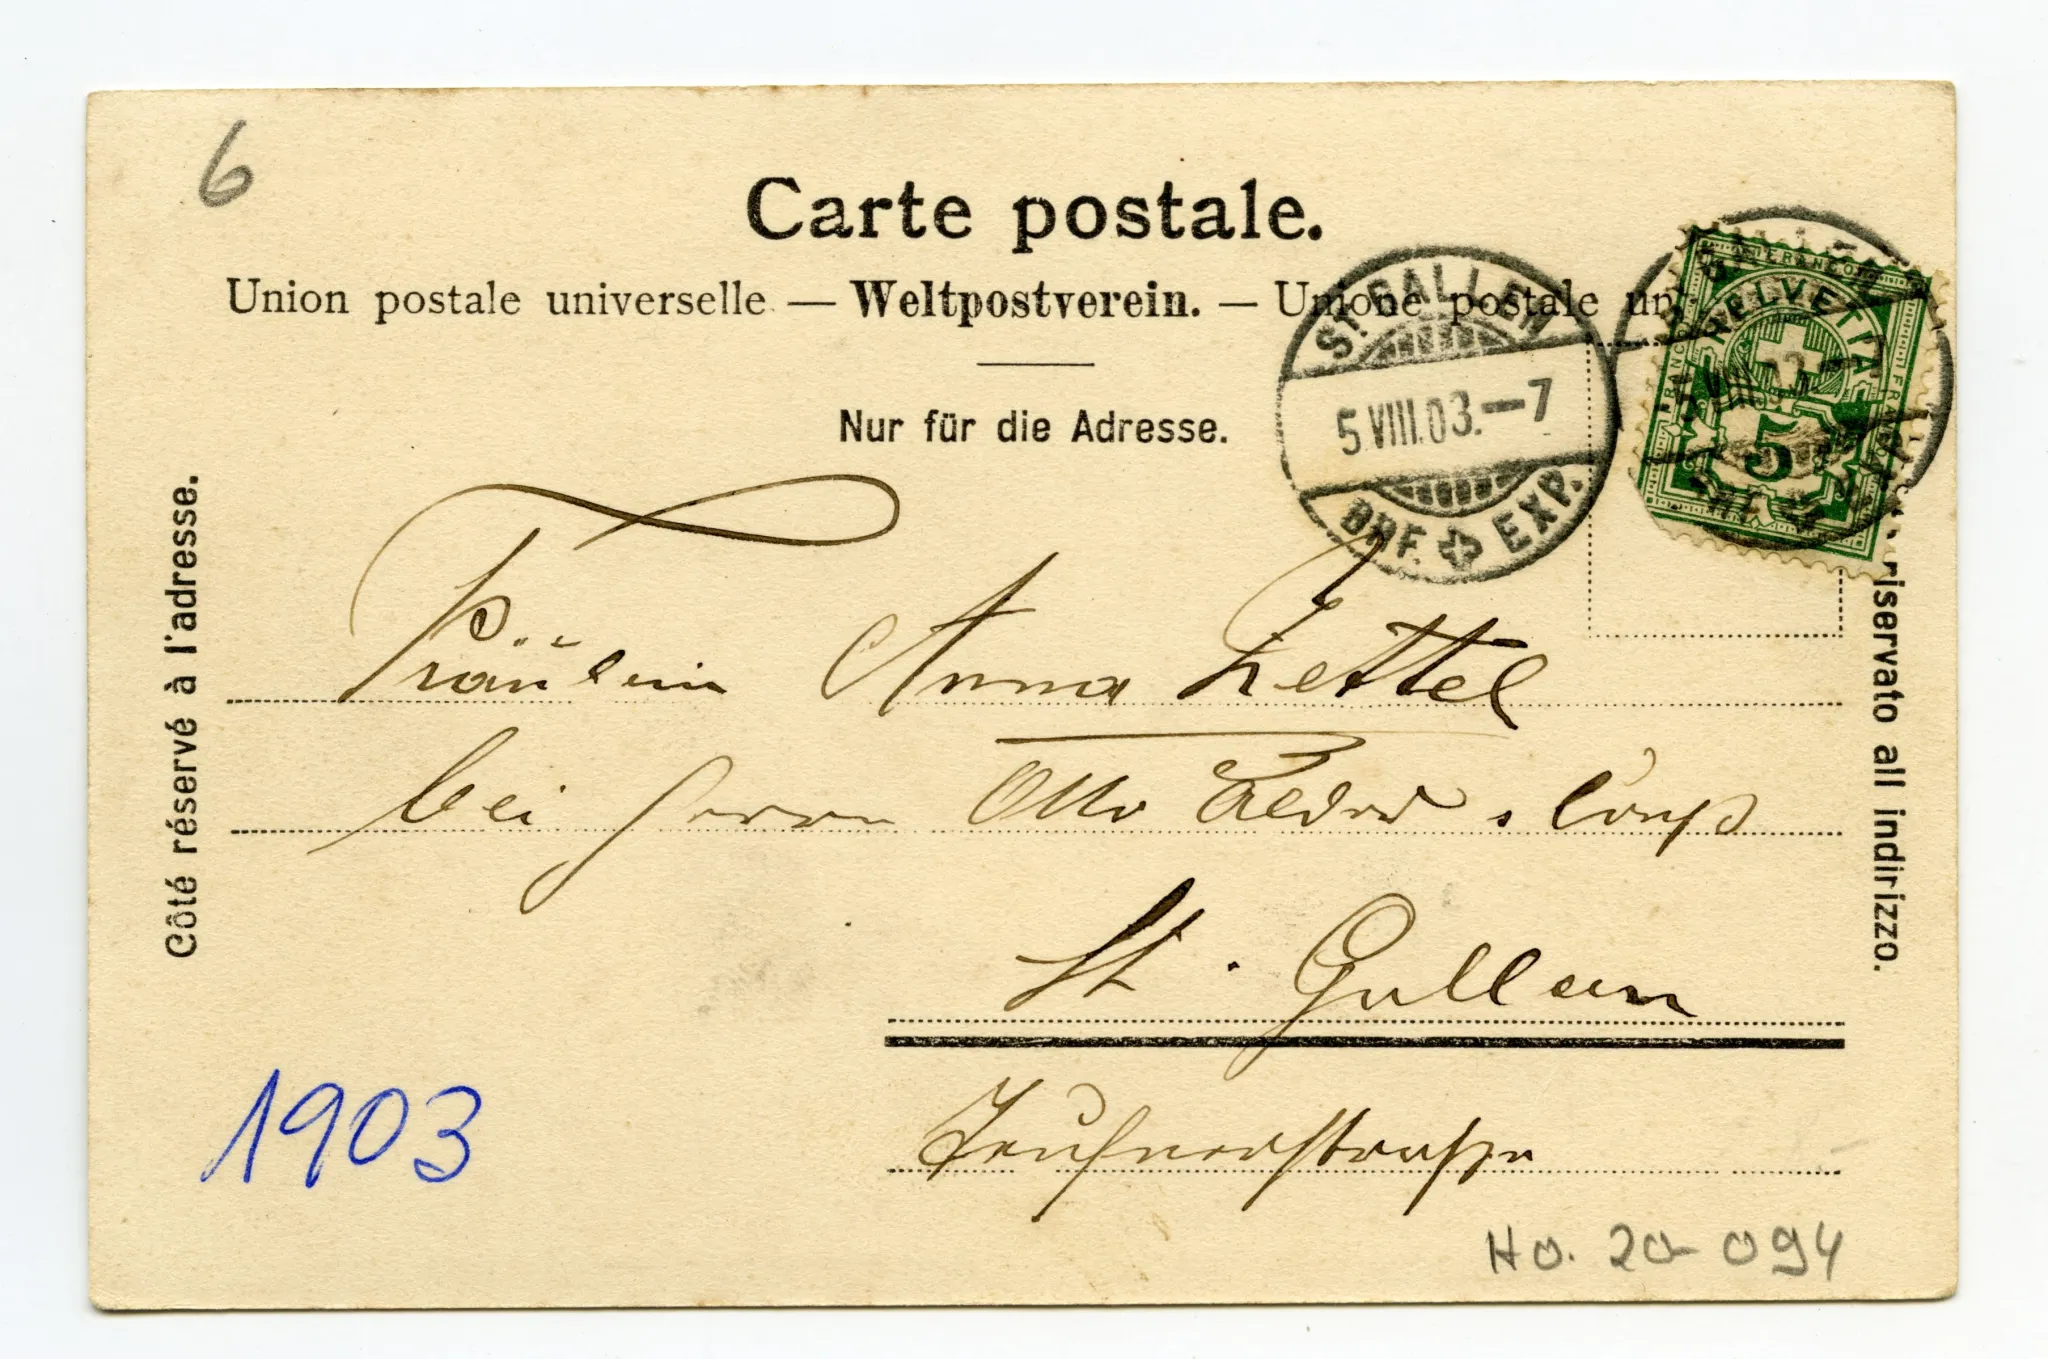 6
Carte postale.
Union postale universelle — Weltpostverein. — Unione postale un
Nur für die Adresse.
ST. GALLEN
5.VIII.03.–7
BRF. EXP.
FRANCO
HELVETIA
5
Côté réservé à l'adresse.
riservato all indirizzo.
Fräulein Anna Zettel
bei Herrn Otto
St. Gallen
Teufenerstrasse
1903
Ho. 20-094